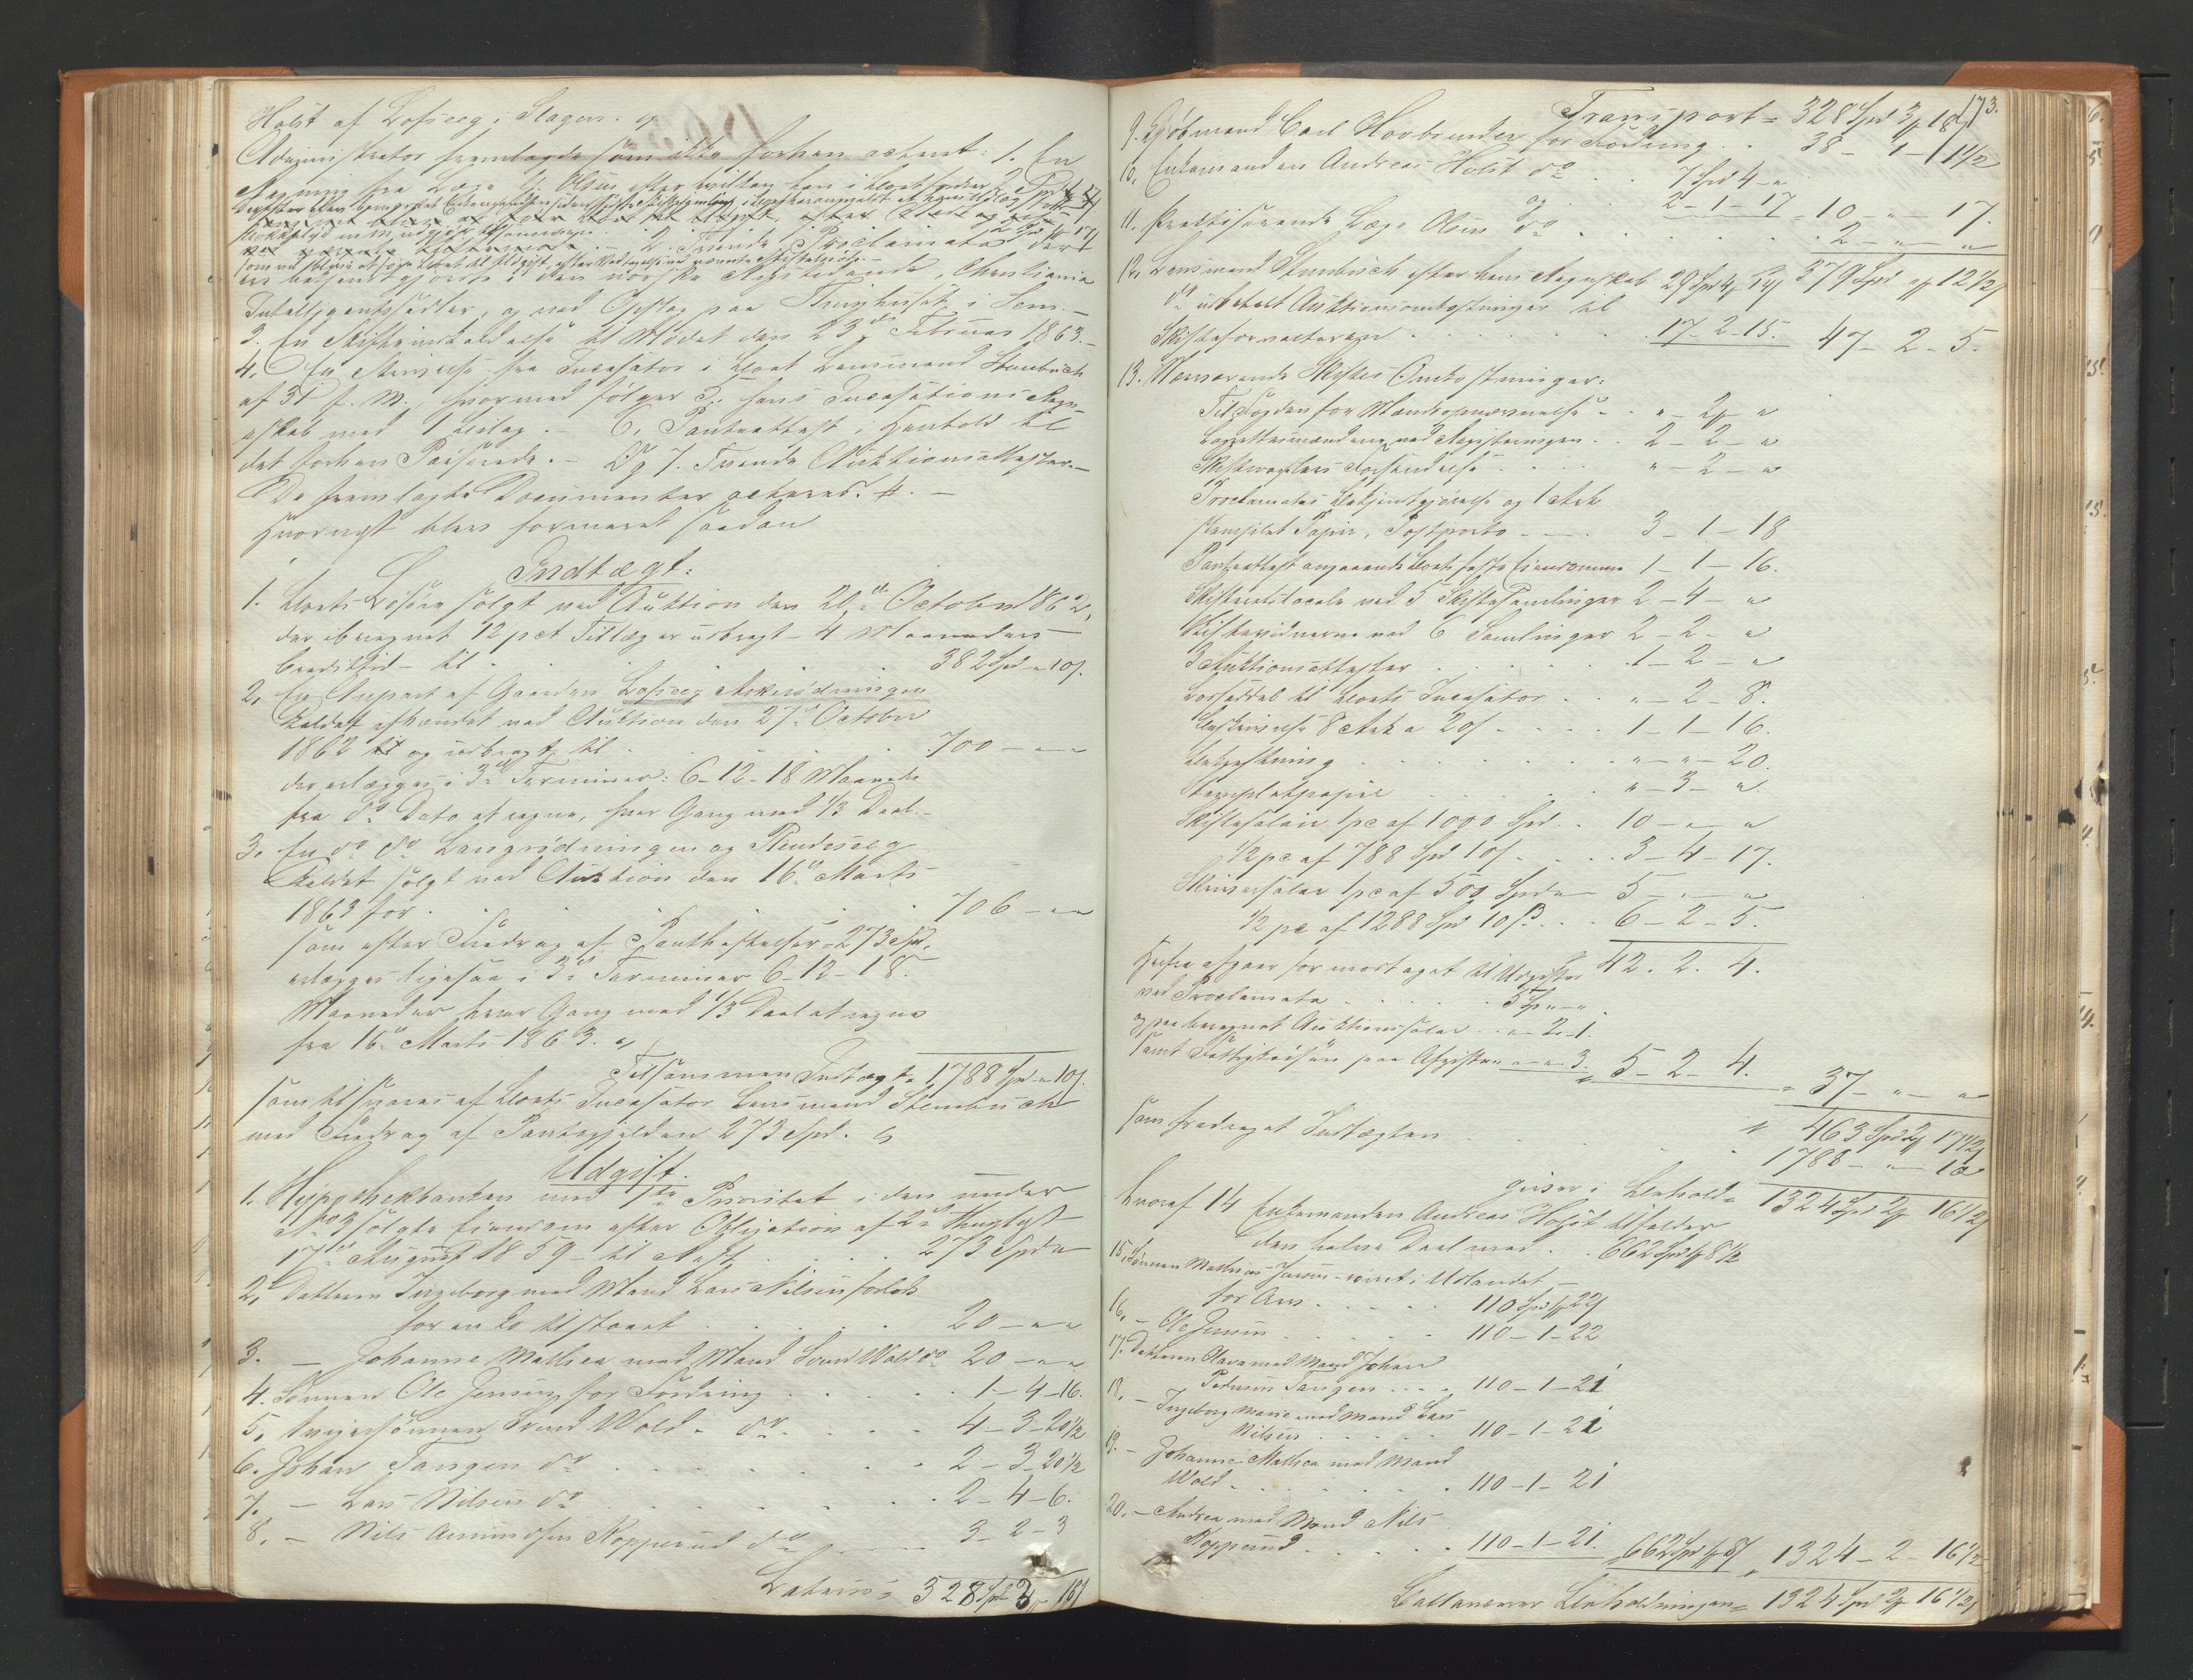 Holst af Lofseeg i Slagen. og
Administrator fremlagde som ikke forhen acteret: 1. En
Regning fra Læge H. Olsen efter hvilken han i Boet fordrer 2 Spd
2. Trende Proclamata der
ere bekjendtgjorte i den norske Rigstidende, Christiania
Intelligentssedler, og ved Opslag paa Thinghuset i Sem. –
3. En Skifteindkaldelse til Mødet den 23de Februar 1863. –
4. En Skrivelse fra Incasator i Boet Lensmand Stenbusch
af 31 f. M., hvormed følger 5, hans Incasations Regn-
skab med 1 Bilag. – 6, Pantattest i Henhold til
det forhen Passerede. – Og 7. Trende Auktionsattester. –
De fremlagte Documenter acteres. #. –
Hvornæst blev formeret saadan
Indtægt:
1. Boets Løsøre solgt ved Auktion den 20de October 1862,
der iberegnet 12 pct Tillæg er udbragt – 4 Maaneders
Credittid – til . . . 382 Spd – 10 s.
2, En Anpart af Gaarden Lofseeg Askerødningen
kaldet afhændet ved Auktion den 27de October
1862 og udbragt til . . . 700 – " – "
der erlægges i 3de Terminer: 6 – 12 – 18 Maaneder
fra do Dato at regne, hver Gang med 1/3 Deel. –
3, En do do Langrødningen og Rindeseeg
kaldet solgt ved Auktion den 16de Marts
1863 for . . . 706 – " – "
som efter Fradrag af Pantheftelser = 273 Spd.
erlægges ligesaa i 3de Terminer 6 – 12 – 18.
Maaneder hver Gang med 1/3 Deel at regne
fra 16de Marts 1863. –
Tilsammen Indtægt = 1788 Spd – 10 s.
som tilsvares af Boets Incasator Lensmand Stenbusch
med Fradrag af Pantegjelden 273 Spd.
Udgift.
1. Hypothekbanken med 1ste Prioritet i den under
No 3 solgte Eiendom efter Obligation af 2de thinglyst
17de August 1859 – til Rest, . . . 273 Spd "
2, Datteren Ingeborg med Mand Lars Nilsen forlods
for en Ko tilstaaet . . . 20 – " – "
3. – Johanne Mathea med Mand Svend Wold do 20 – " – "
4. Sønnen Ole Jensen for Fordring . . . 1 – 4 – 16.
5, Svigersønnen Svend Wold – do . . . 4 – 3 – 20 1/2
6. Johan Tangen do . . . 2 – 3 – 20 1/2
7. – Lars Nilsen do . . . 2 – 4 – 6.
8. – Nils Amundsen Kopperud do . . . 3 – 2 – 3
Lateris = 328 Spd 3 – 18 s
173.
Transport = 328 Spd 3 18 s
9. Kjøbmand Carl Hovbrender for Fordring . . 38 – 1 – 1 1/2
10, Enkemanden Andreas Holst do . . 7 Spd 4 – "
og . . 2 – 1 – 17 = 10 – " – 17.
11. Praktiserende Læge Olsen do . . . 2 – " – "
379 Spd " 12 1/2 s
12, Lensmand Stenbusch efter hans Regnskab 29 Spd 4 14 s
do udbetalt Auktionsomkostninger til
Skifteforvalteren . . . 17 – 2 – 15. 47 – 2 – 5.
13. Nærværende Skiftes Omkostninger:
Til Fogden for Mændsopnævnelse . . " – 2 – "
Laugrettesmændene ved Registeringen . . 2 – 2 – "
Skiftevaglens Forkyndelse . . . " – 2 – "
Proclamatas Bekjentgjørelse og 1 Ark
stemplet Papir, Postporto . . . 3 – 1 – 18
Pantattest angaaende Boets faste Eiendomme 1 – 1 – 16.
Skifteretslocale ved 5 Skiftesamlinger 2 – 4 – "
Skiftevidnerne ved 6 Samlinger 2 – 2 – "
3 Auktionsattester . . . 1 – 2 – "
Lodseddel til Boets Incasator . . " – 2 – 8.
Beskrivelse 8 Ark a 20 s . . . 1 – 1 – 16.
Udheftning . . . " – " – 20.
Stempletpapir . . . " – 3 – "
Skiftesalair 1 pc af 1000 Spd . . 10 – " – "
1/2 pc af 788 Spd 10 s . . . 3 – 4 – 17.
Skriversalar 1 pc af 500 Spd " 5 – " – "
1/2 pc af 1288 Spd 10 s . . 6 – 2 – 5.
42. 2. 4.
Herfra afgaar formodtaget til Udgifter
ved Proclamata . . . 5 Spd " "
og paa beregnet Auktionssalar . . " – 2 – 1.
samt paa Afgiften " – " – 3. 5 – 2 – 4.
= 37 – " – "
463 Spd 2 17 1/2 s
som fradraget Indtægten . . . 1788 – " – 10
giver i Behold = 1324 Spd 2 16 1/2 s
hvoraf 14 Enkemanden Andreas Holst tilfalder
den halve Deel med . . 662 Spd 1 8 1/2
15, Sønnen Mathias Jensen – reist i Udlandet –
for Arv . . . 110 Spd 1 22 s
16, – Ole Jensen . . . 110 – 1 – 22
17. Datteren Clara med Mand Johan
Pedersen Tangen . . . 110 – 1 – 21
18, – Ingeborg Marie med Mand Lars
Nilsen . . . 110 – 1 – 21
19. – Johanne Mathea med Mand
Wold . . . 110 – 1 – 21
20. – Andrea med Mand Nils
Kopperud . . . 110 – 1 – 21. = 662 Spd 1 8 s = 1324 – 2 – 16 1/2
Ballancerer Beholdningen = 1324 Spd 2 16 1/2 s